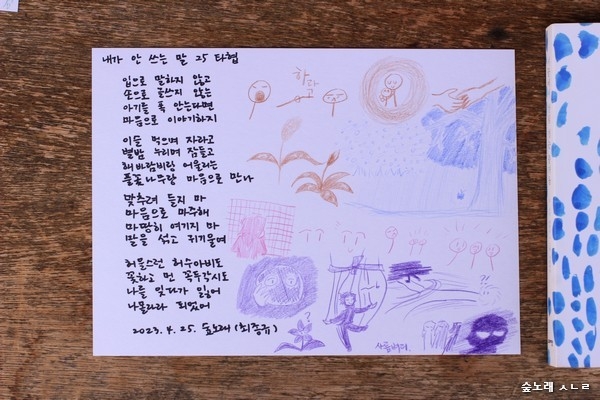 내가 안 쓰는 말 25 타협
입으로 말하지 않고
손으로 글쓰지 않는
아기를 폭 안는다면
마음으로 이야기하지
이슬 먹으며 자라고
별밤 누리며 잠들고
해바람비랑 어울리는
풀꽃나무랑 마음으로 만나
맞추려 들지 마
마음으로 마주해
마땅히 여기지 마
말을 섞고 귀기울여
허울스런 허수아비도
꽃하고 먼 꼭두각시도
나를 잊다가 잃어
나몰라라 되었어
2023. 4. 25. 숲노래 (최종규)
하라고
사름벼리
숲노래 ㅅㄴㄹ